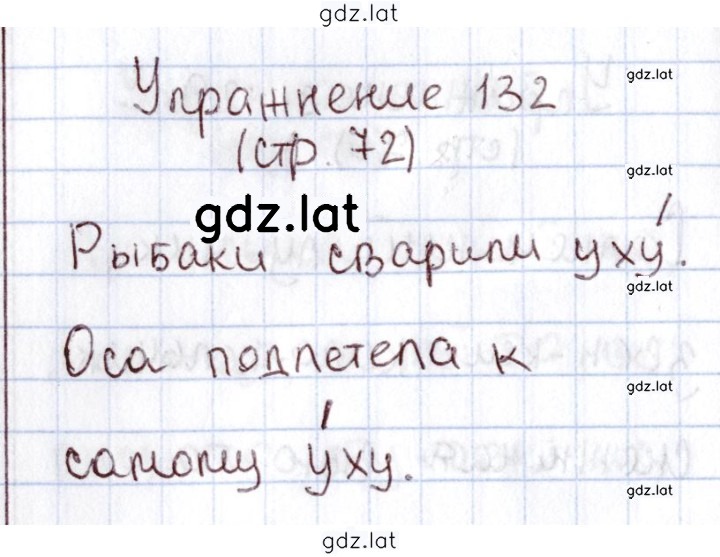 gdz.lat
Упражнение 132
gdz.lat
(стр. 72)
gdz.lat
gdz.lat
Рыбаки сварили уху́.
gdz.lat
Оса подлетела к
gdz.lat
самому у́ху.
gdz.lat
gdz.lat